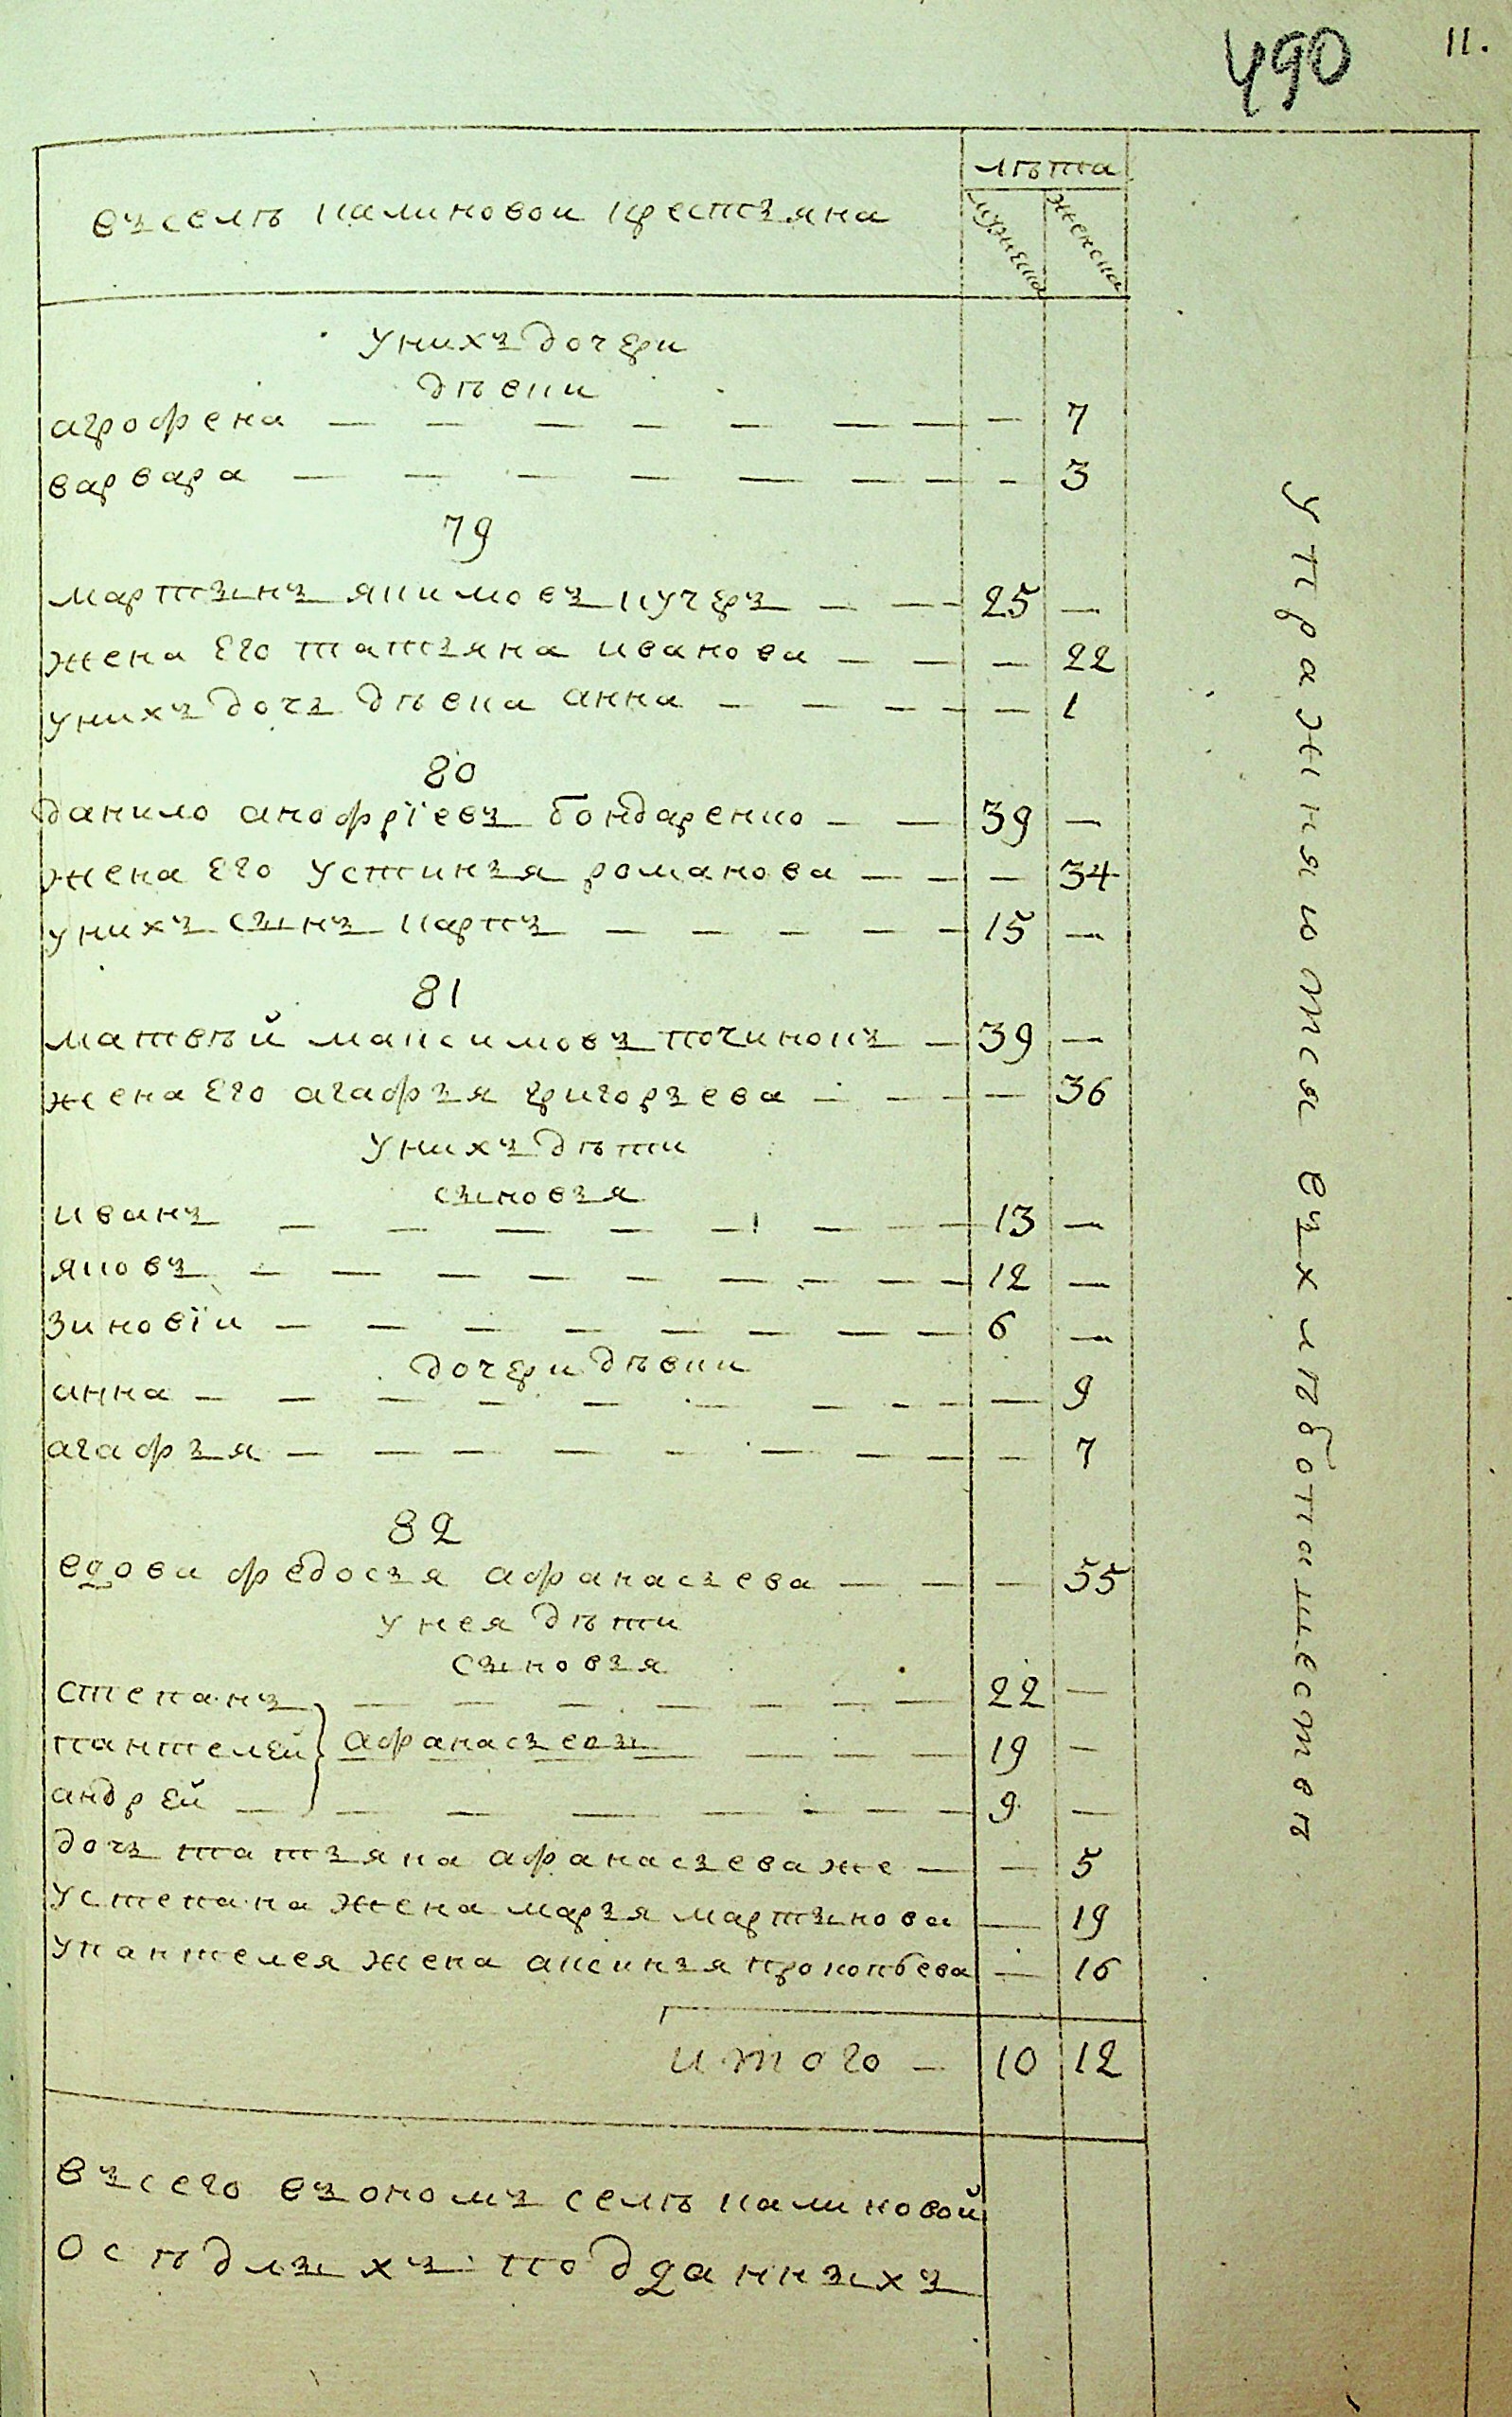 490
11.
лѣта
въселѣ калиновои крестьяна
мужеска
женска
унихъ дочери
дѣвки
агрофена — — — — — — — — 7
варвара — — — — — — — — 3
79
мартынъ якимовъ кучеръ — — — 25 —
жена его татьяна иванова — — — 22
унихъ дочь дѣвка анна — — — — — 1
80
данило анофрїевъ бондаренко — — 39 —
жена его устинья романова — — — 34
унихъ сынъ карпъ — — — — — 15 —
81
матвѣй максимовъ починокъ — 39 —
жена его агафья григорьева — — — — 36
унихъ дѣти
сыновья
иванъ — — — — — — — 13 —
яковъ — — — — — — — — — 12 —
зиновїи — — — — — — — — 6 —
дочери дѣвки
анна — — — — — — — — — — 9
агафья — — — — — — — — — 7
82
вдова федосья афанасьева — — — 55
унея дѣти
сыновья
степанъ — — — — — — — 22 —
пантелей афанасьевы — — — 19 —
андрей — — — — — — — — 9 —
дочь татьяна афанасьева же — — 5
устепана жена марья мартынова — 19
упантелея жена аксинья прокопьева — 16
итого — 10 12
въсего въономъ селѣ калиновой
осѣдлыхъ подданныхъ
упражняются въхлѣбопашествѣ